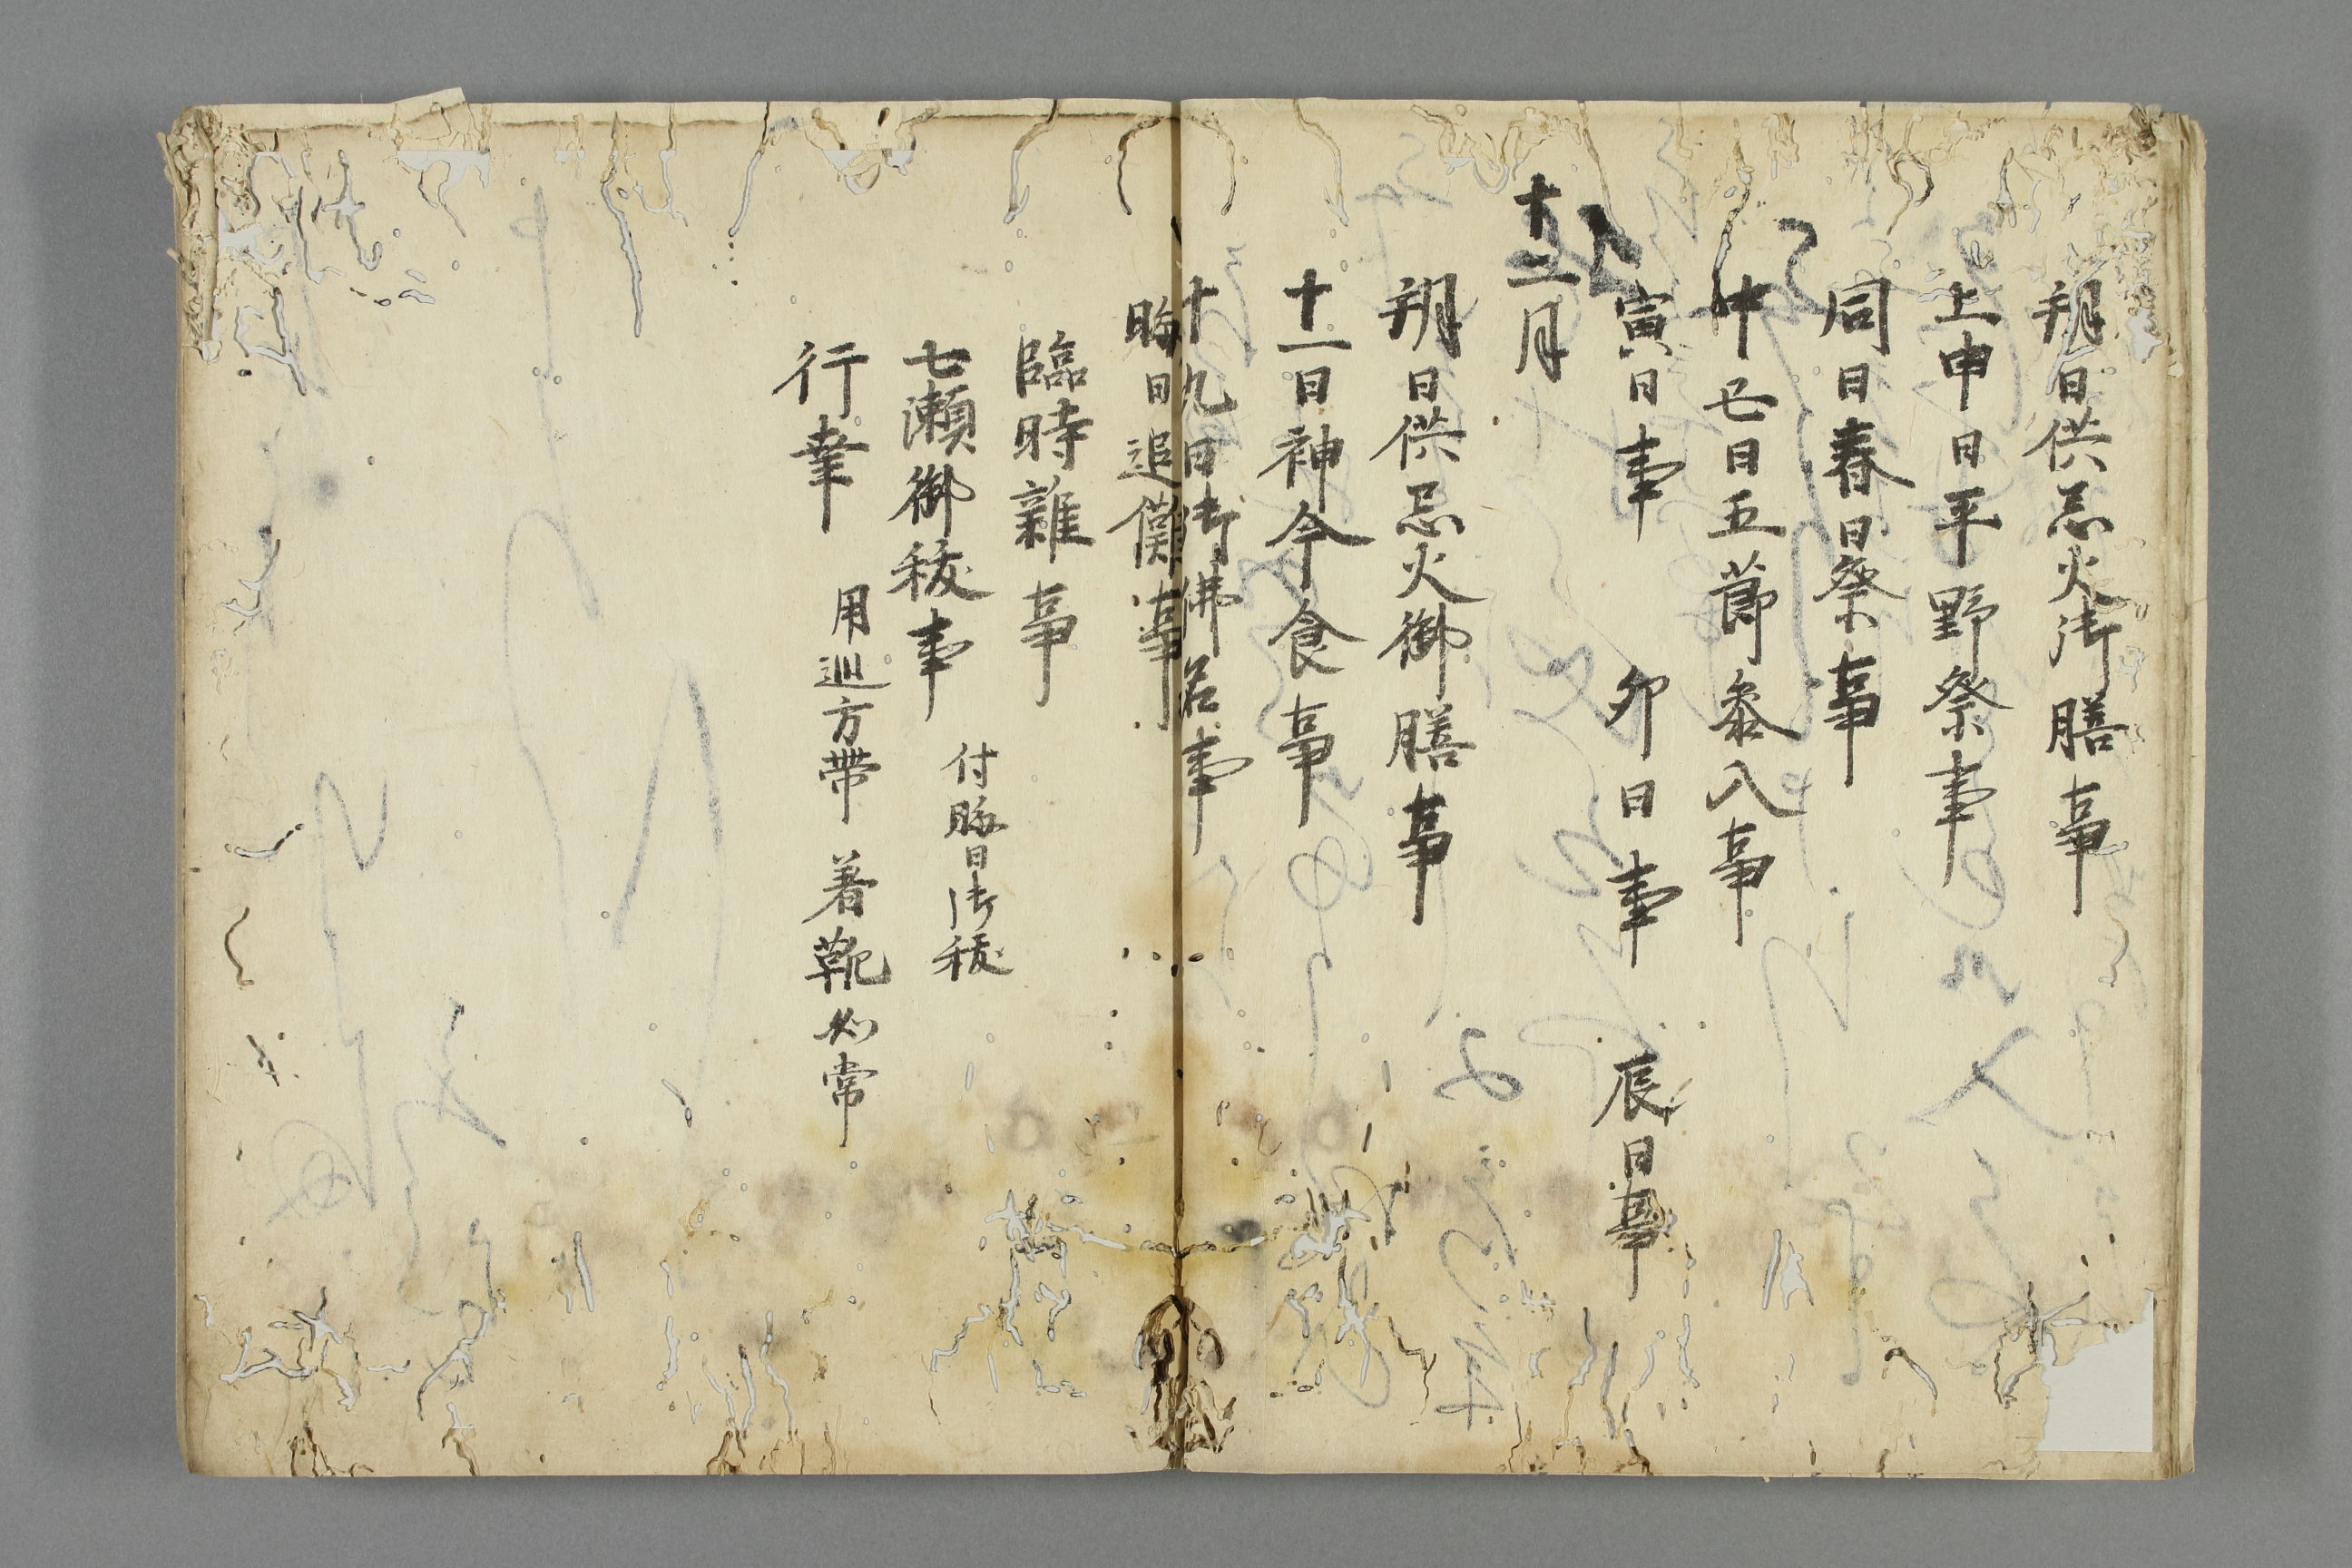 朔日供忌火御膳事
上申日平野祭事
同日春日祭事
中丑日五節参入事
寅日事 卯日事 辰日事
十二月
朔日供忌火御膳事
十一日神今食事
十九日御佛名事
晦日追儺事
臨時雜事
七瀬御祓事 付晦日御祓
行幸 用巡方帶 着靴如常